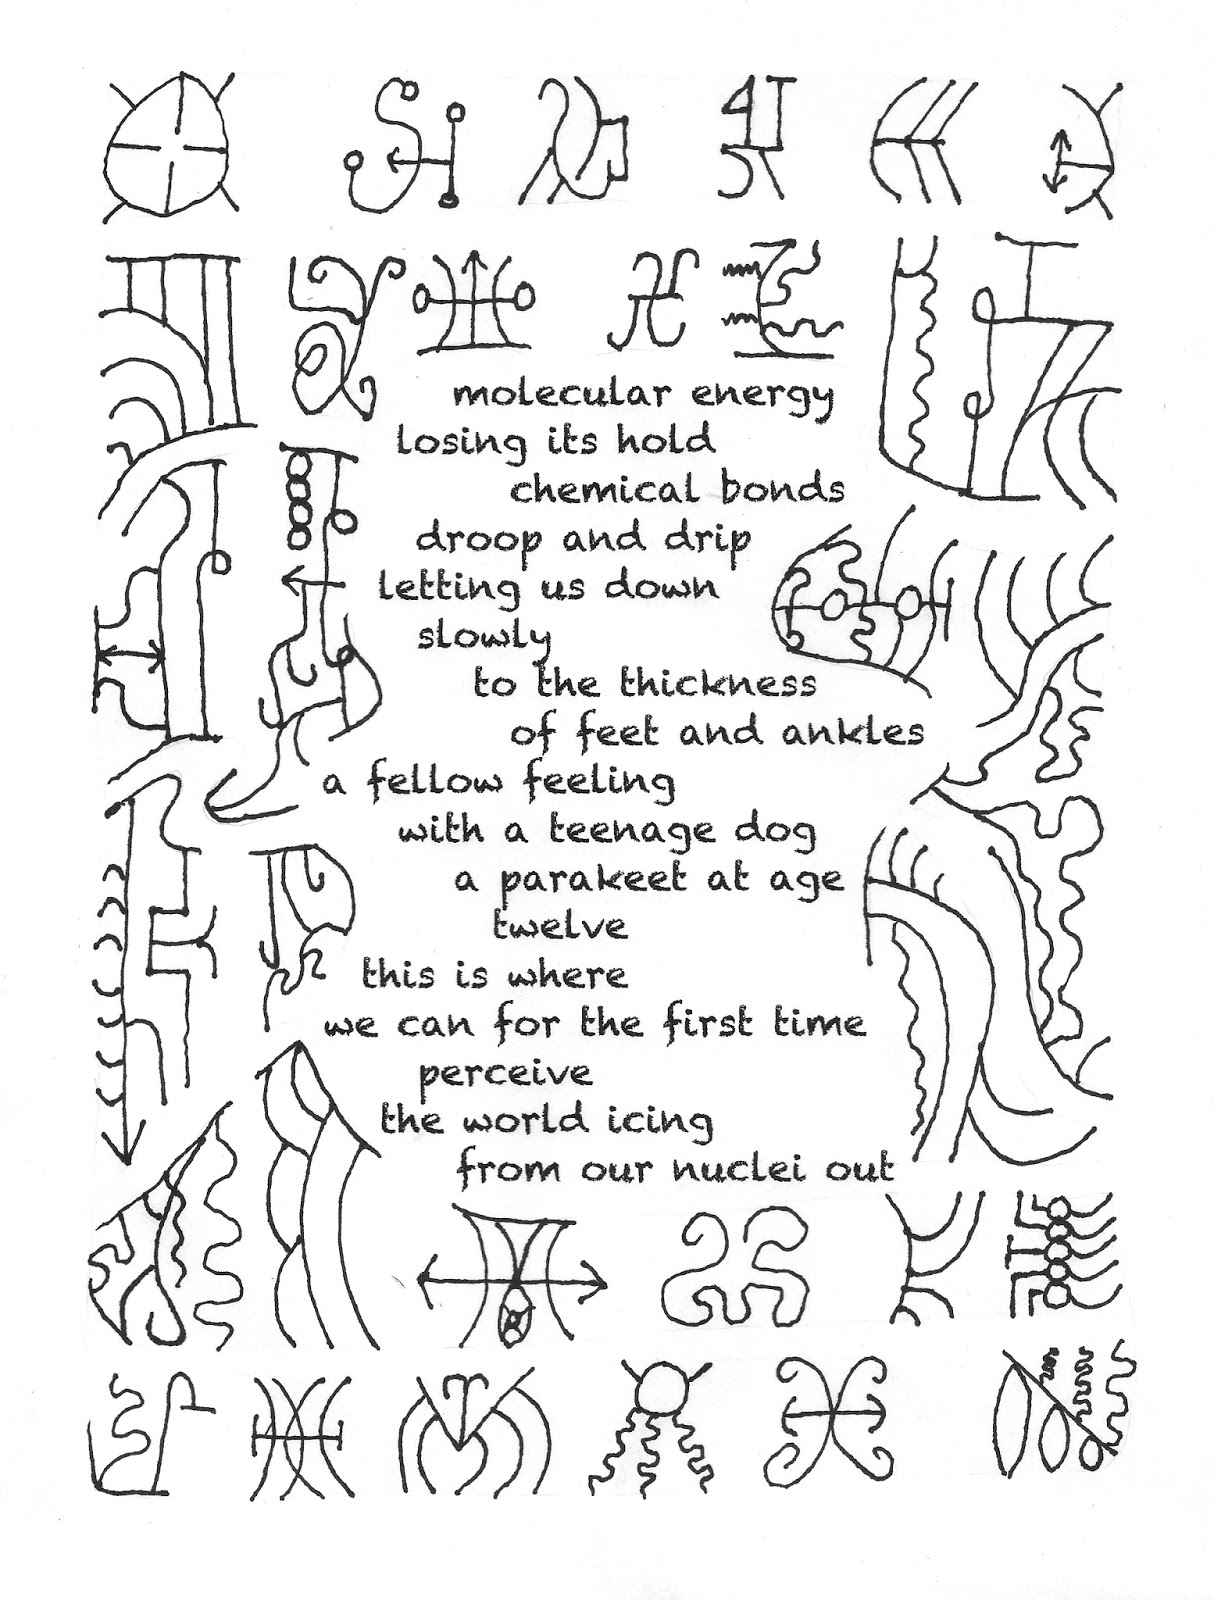 molecular energy
losing its hold
chemical bonds
droop and drip
letting us down
slowly
to the thickness
of feet and ankles
a fellow feeling
with a teenage dog
a parakeet at age
twelve
this is where
we can for the first time
perceive
the world icing
from our nuclei out